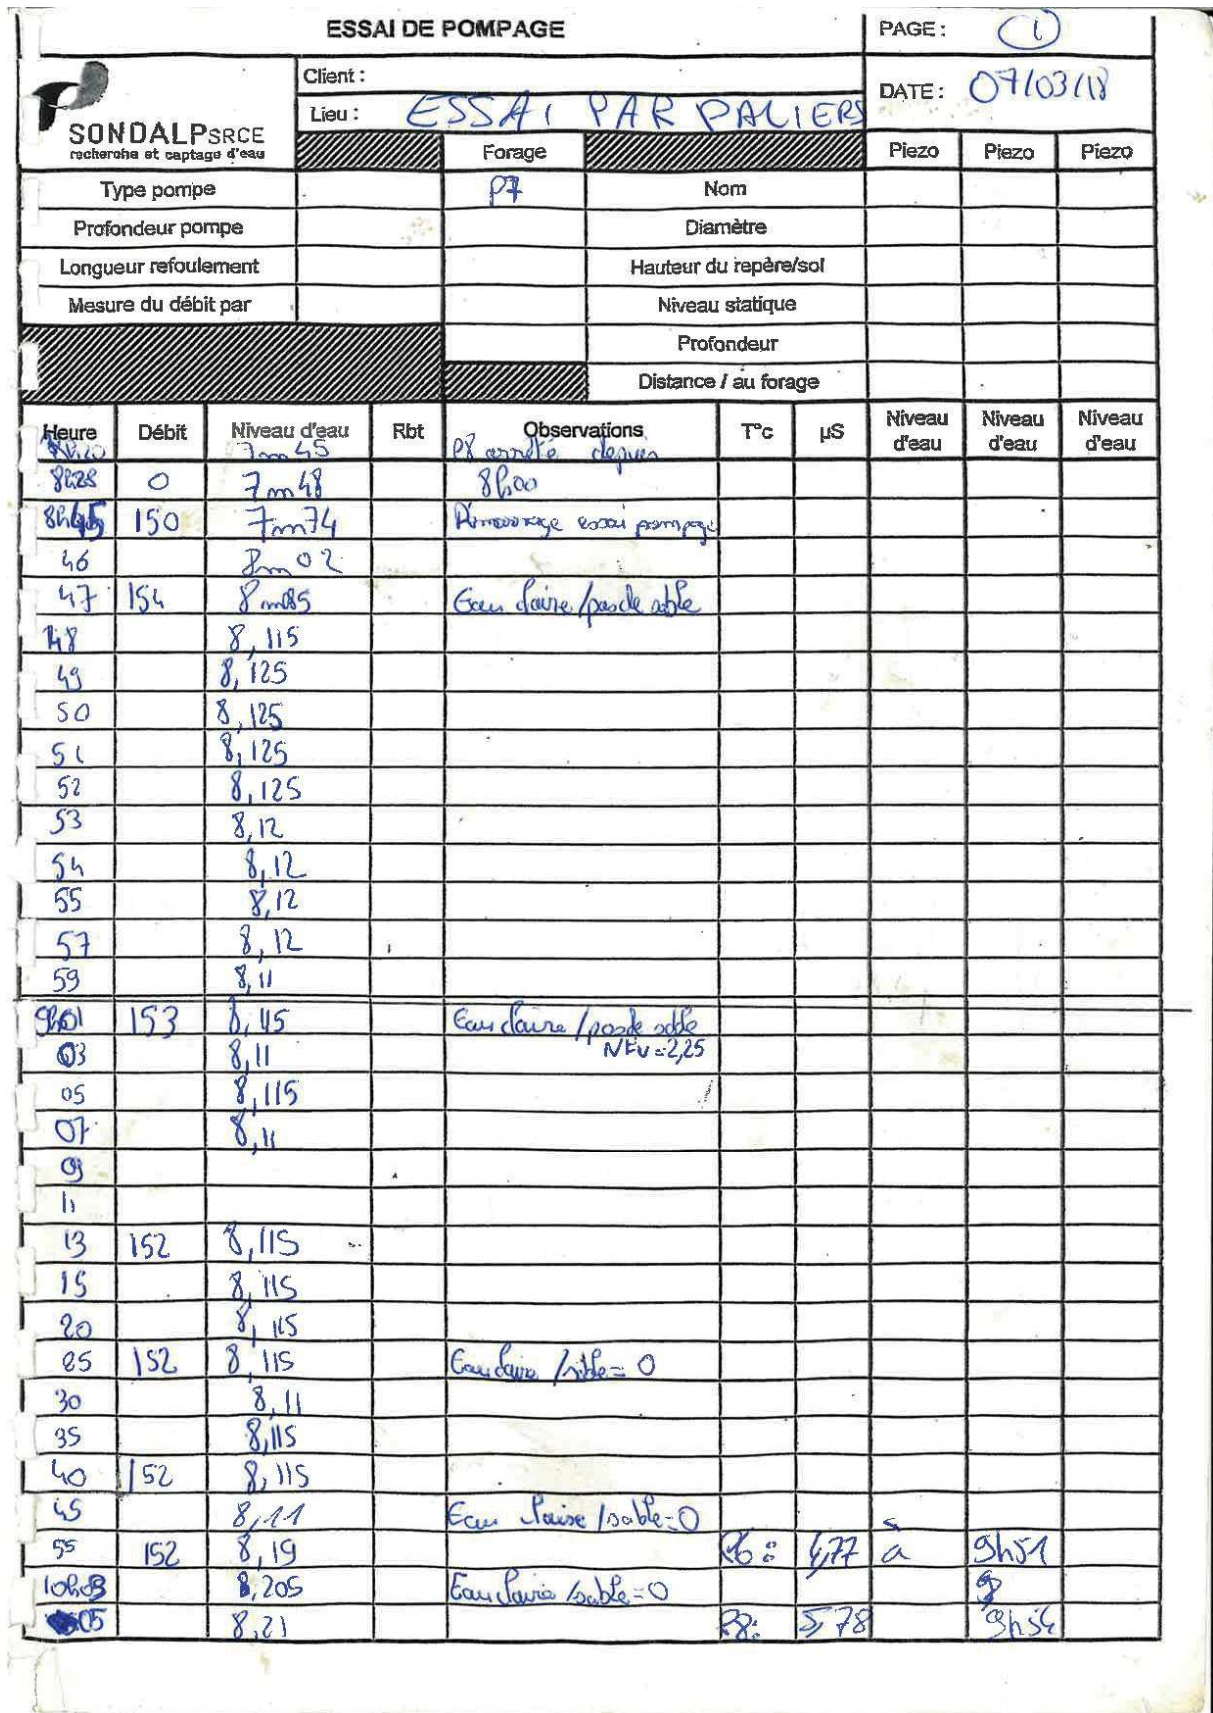 ESSAI DE POMPAGE PAGE : 1
Client :
DATE : 07/03/18
Lieu : ESSAI PAR PALIERS
SONDALP SRCE
recherche et captage d'eau
Forage Piezo Piezo Piezo
Type pompe P7 Nom
Profondeur pompe Diamètre
Longueur refoulement Hauteur du repère/sol
Mesure du débit par Niveau statique
Profondeur
Distance / au forage
Heure Débit Niveau d'eau Rbt Observations T°c µS Niveau d'eau Niveau d'eau Niveau d'eau
7m45 P8 arrêté depuis
8h28 0 7m48 8h00
8h45 150 7m74 Démarrage essai pompage
46 8m02
47 154 8m085 Eau claire / pas de sable
48 8,115
49 8,125
50 8,125
51 8,125
52 8,125
53 8,12
54 8,12
55 8,12
57 8,12
59 8,11
9h01 153 8,115 Eau claire / pas de sable
03 8,11 NFU = 2,25
05 8,115
07 8,11
09
11
13 152 8,115
15 8,115
20 8,115
25 152 8,115 Eau claire / sable = 0
30 8,11
35 8,115
40 152 8,115
45 8,11 Eau claire / sable = 0
55 152 8,19 P6 : 4,77 à 9h51
10h03 8,205 Eau claire / sable = 0
05 8,21 P8: 5,78 9h54